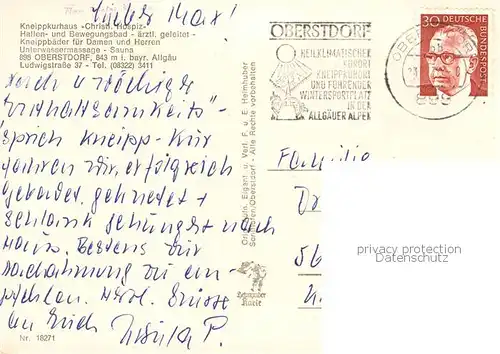 Lieber Max!
Kneippkurhaus - Christl. Hospiz -
Hallen- und Bewegungsbad - ärztl. geleitet -
Kneippbäder für Damen und Herren
Unterwassermassage - Sauna
898 OBERSTDORF, 843 m i. bayr. Allgäu
Ludwigstraße 37 - Tel. (08322) 3411
nach 4 wöchiger
"Enthaltsamkeits"-
sprich Kneipp-Kur
fahren wir, erfolgreich
gebadet, geknetet +
schlank schlank nach
Haus. Bestens zur
Nachahmung zu em-
pfehlen. Herzl. Grüsse
an Euch Ursula P.
Nr. 18271
Orig. Aufn. Eigent u. Verl. F. u. E. Heimhuber
Sonthofen/Oberstdorf - Alle Rechte vorbehalten
Heimhuber
Karte
OBERSTDORF
HEILKLIMATISCHER
KURORT
KNEIPPKURORT
UND FÜHRENDER
WINTERSPORTPLATZ
IN DEN
ALLGÄUER ALPEN
OBERSTDORF
898
30 DEUTSCHE
BUNDESPOST
Familie
Dr
56
privacy protection
DSGVO Datenschutz